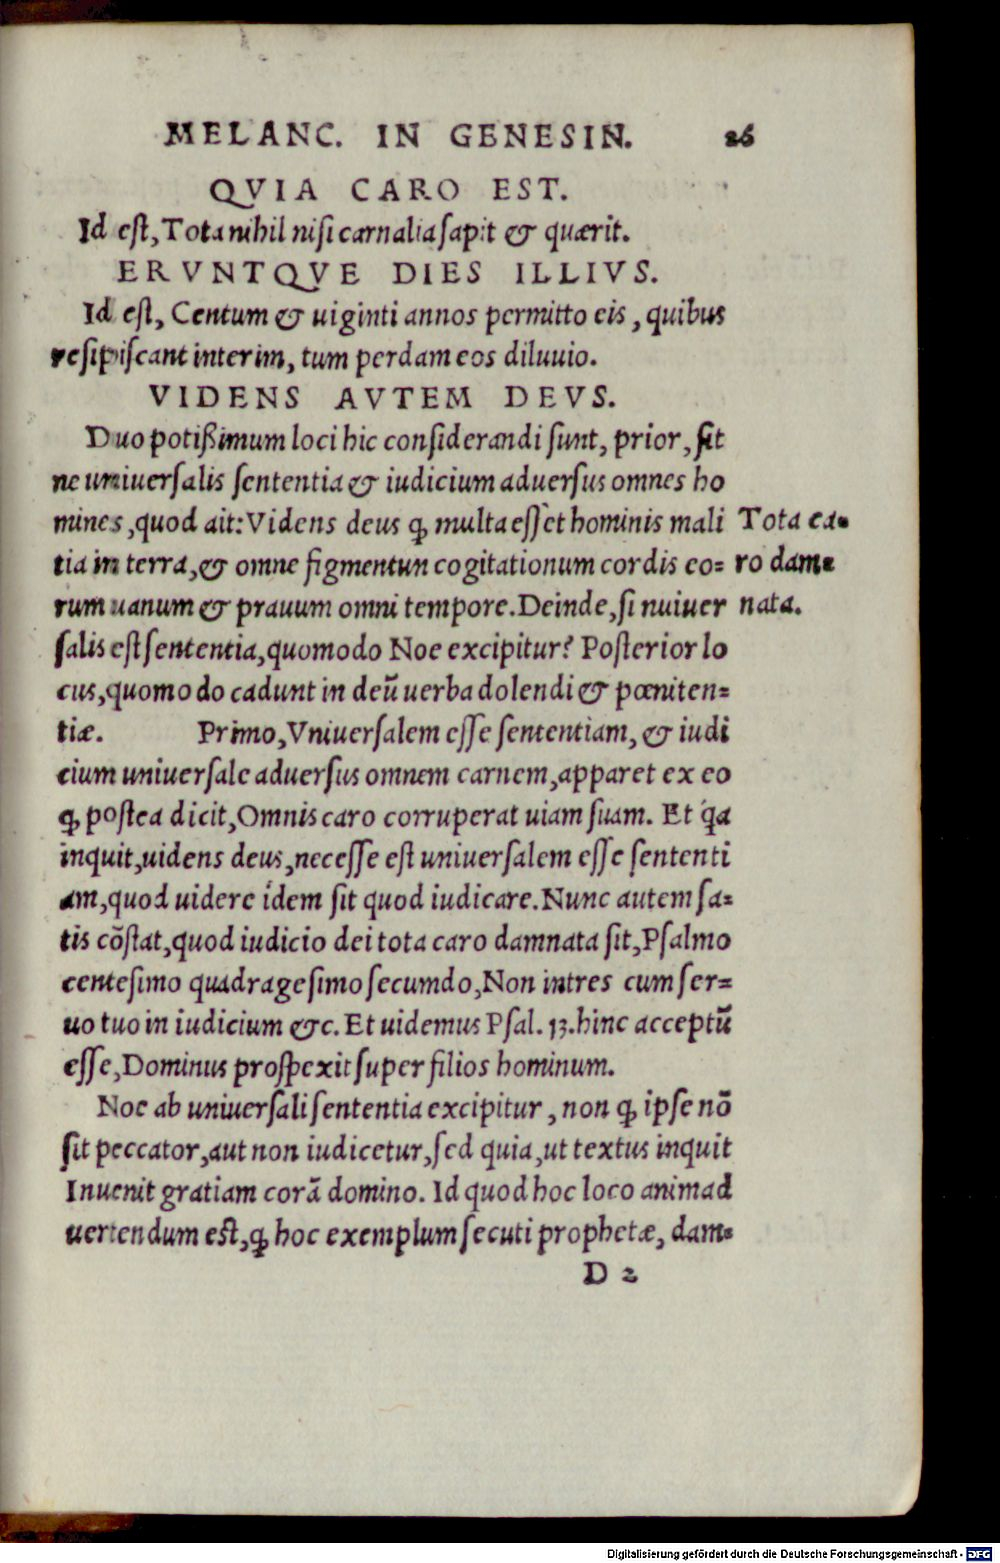 MELANC. IN GENESIN. 26
QVIA CARO EST.
Id est, Tota nihil nisi carnalia sapit & quærit.
ERVNTQVE DIES ILLIVS.
Id est, Centum & uiginti annos permitto eis, quibus
resipiscant interim, tum perdam eos diluuio.
VIDENS AVTEM DEVS.
Duo potißimum loci hic considerandi sunt, prior, sit
ne uniuersalis sententia & iudicium aduersus omnes ho
mines, quod ait: Videns deus ꝙ multa esset hominis mali
tia in terra, & omne figmentun cogitationum cordis eo=
rum uanum & prauum omni tempore. Deinde, si nuiuer
salis est sententia, quomodo Noe excipitur? Posterior lo
cus, quomodo cadunt in deũ uerba dolendi & pœniten=
tiæ. Primo, Vniuersalem esse sententiam, & iudi
cium uniuersale aduersus omnem carnem, apparet ex eo
ꝙ postea dicit, Omnis caro corruperat uiam suam. Et q̃a
inquit, uidens deus, necesse est uniuersalem esse sententi
am, quod uidere idem sit quod iudicare. Nunc autem sa=
tis cõstat, quod iudicio dei tota caro damnata sit, Psalmo
centesimo quadragesimo secumdo, Non intres cum ser=
uo tuo in iudicium &c. Et uidemus Psal. 13. hinc acceptũ
esse, Dominus prospexit super filios hominum.
Noe ab uniuersali sententia excipitur, non ꝙ ipse nõ
sit peccator, aut non iudicetur, sed quia, ut textus inquit
Inuenit gratiam corã domino. Id quod hoc loco animad
uertendum est, ꝙ hoc exemplum secuti prophetæ, dam=
D 2
Tota ca=
ro dam=
nata.
Digitalisierung gefördert durch die Deutsche Forschungsgemeinschaft - DFG